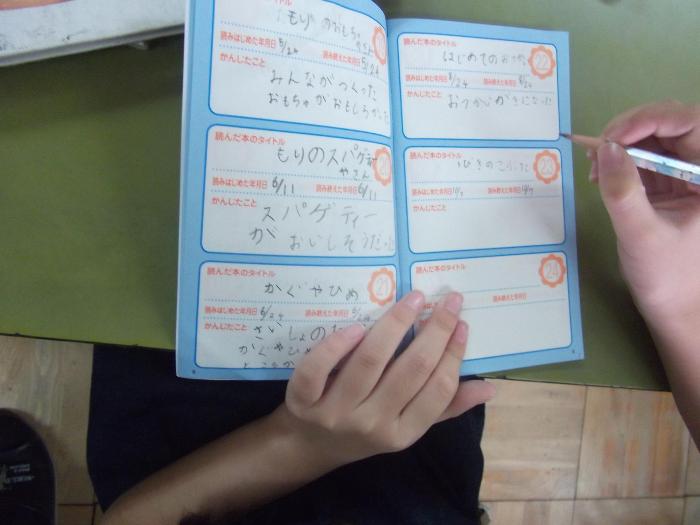 もりのおもちゃ
やさん
19
読みはじめた年月日 5/24 読み終えた年月日 5/24
かんじたこと
みんながつくった
おもちゃがおもしろかった
読んだ本のタイトル
もりのスパゲティ
やさん
20
読みはじめた年月日 6/11 読み終えた年月日 6/11
かんじたこと
スパゲティー
が おいしそうだった
読んだ本のタイトル
かぐやひめ
21
読みはじめた年月日 6/24 読み終えた年月日
かんじたこと
さいしょの
かぐやひめ
読んだ本のタイトル
はじめてのおつかい
22
読みはじめた年月日 6/24 読み終えた年月日 6/24
かんじたこと
おつかいがきになった
読んだ本のタイトル
こぶた
23
読みはじめた年月日 読み終えた年月日
かんじたこと
読んだ本のタイトル
24
読み終えた年月日